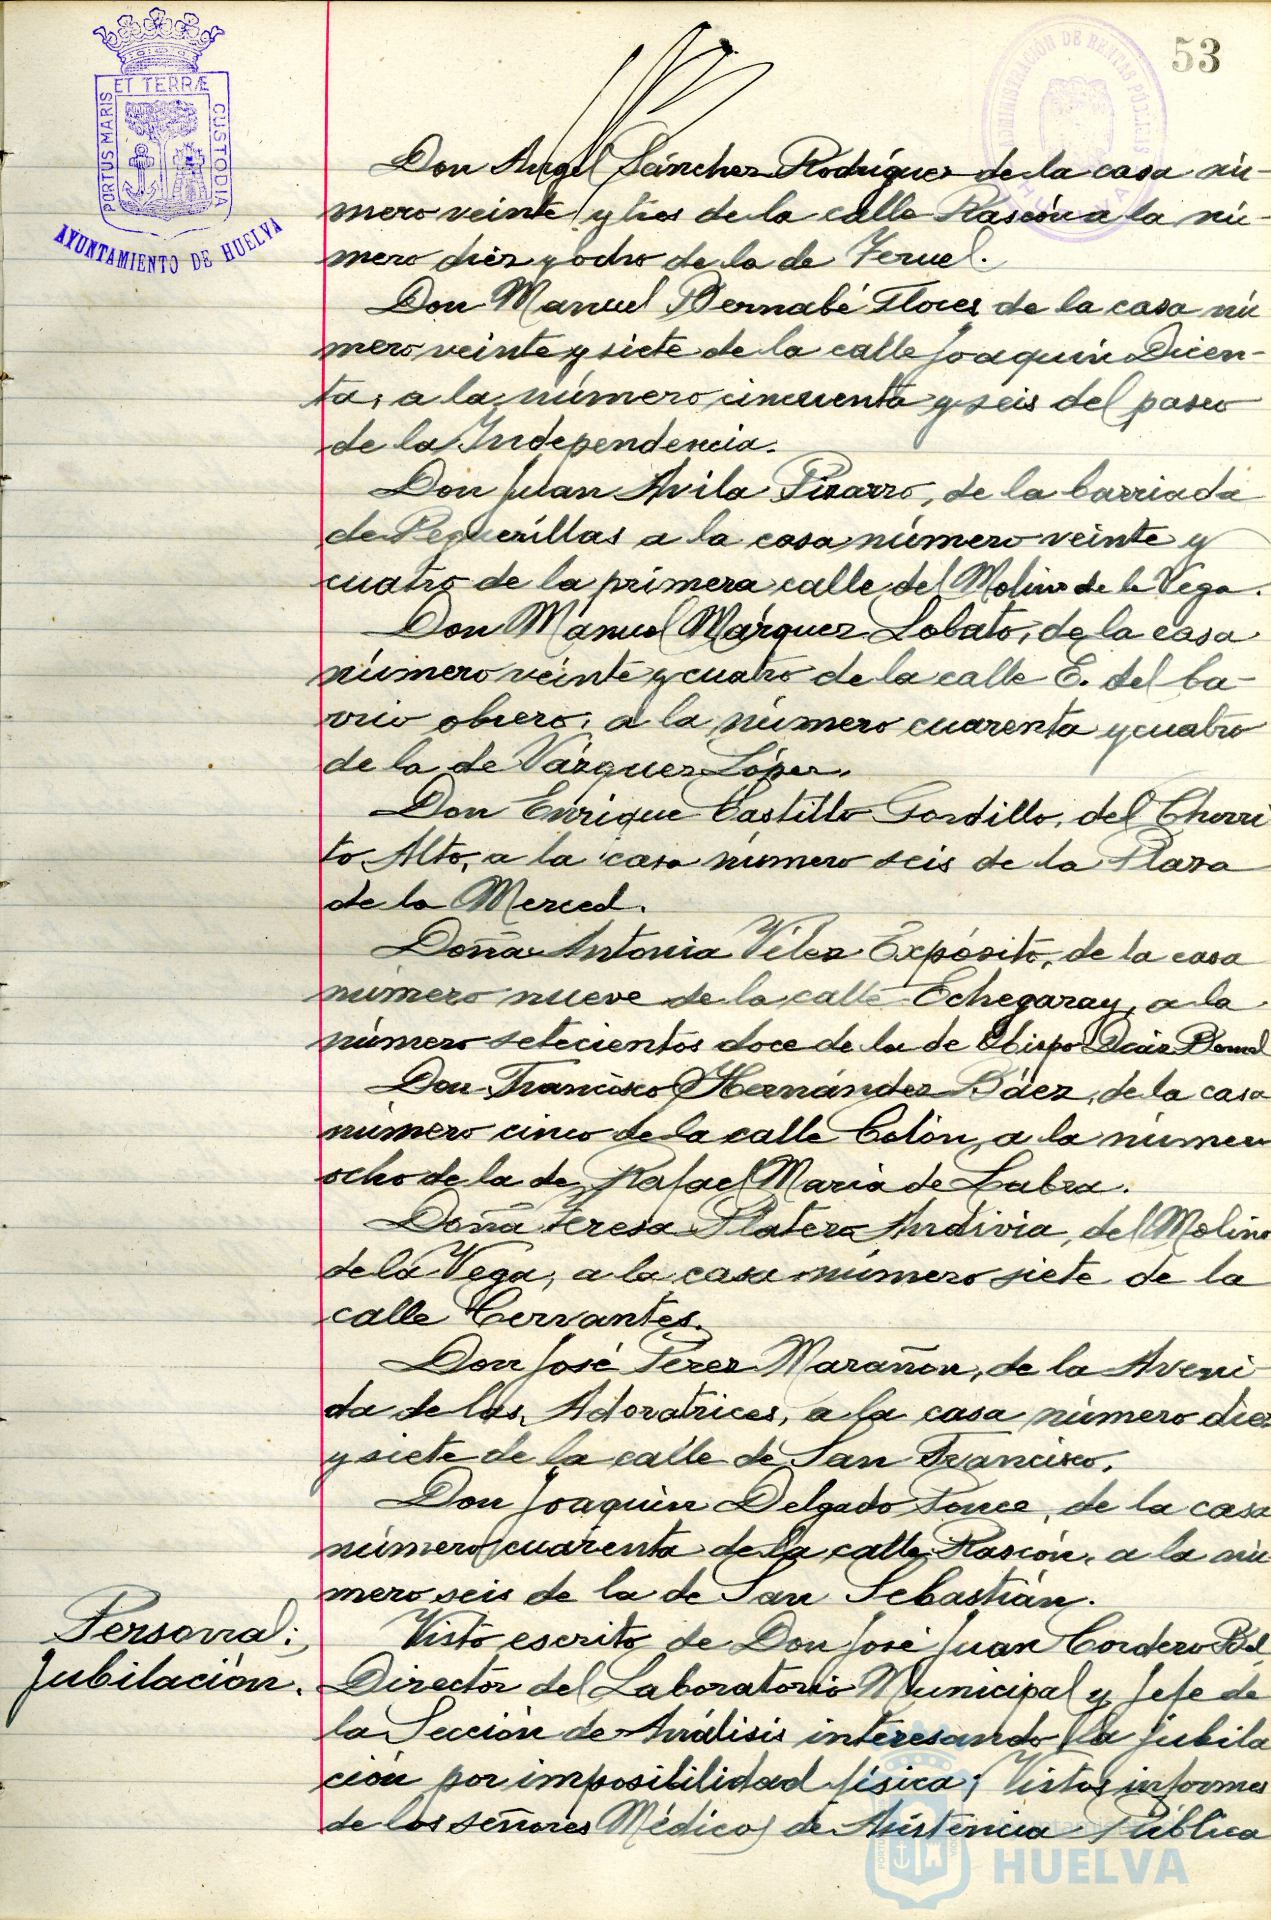 53
ET TERRÆ
PORTUS MARIS
CUSTODIA
AYUNTAMIENTO DE HUELVA
ADMINISTRACIÓN DE RENTAS PÚBLICAS
Don Angel Sánchez Rodríguez de la casa nú-
mero veinte y tres de la calle Rascón a la nú-
mero diez y ocho de la de Teruel.
Don Manuel Bernabé Flores de la casa nú
mero veinte y siete de la calle Joaquín Dicen-
ta, a la número cincuenta y seis del paseo
de la Independencia.
Don Juan Avila Pizarro, de la barriada
de Peguerillas a la casa número veinte y
cuatro de la primera calle del Molino de la Vega.
Don Manuel Márquez Lobato, de la casa
número veinte y cuatro de la calle E. del ba-
rrio obrero, a la número cuarenta y cuatro
de la de Vázquez López.
Don Enrique Castillo Gordillo, del Chorri
to Alto, a la casa número seis de la Plaza
de la Merced.
Doña Antonia Vélez Expósito, de la casa
número nueve de la calle Echegaray, a la
número setecientos doce de la de Obispo
Don Francisco Hernández Báez, de la casa
número cinco de la calle Colón, a la número
ocho de la de Rafael María de Labra.
Doña Teresa Platero Andivia, del Molino
de la Vega, a la casa número siete de la
calle Cervantes.
Don José Perez Marañon, de la Aveni-
da de las Adoratrices, a la casa número diez
y siete de la calle de San Francisco.
Don Joaquín Delgado Ponce, de la casa
número cuarenta de la calle Rascón, a la nú
mero seis de la de San Sebastián.
Personal:
Jubilación.
Visto escrito de Don José Juan Cordero
Director del Laboratorio Municipal y Jefe de
la Sección de Análisis interesando la jubila
ción por imposibilidad física; Vistos informes
de los señores Médicos de Asistencia Pública
HUELVA